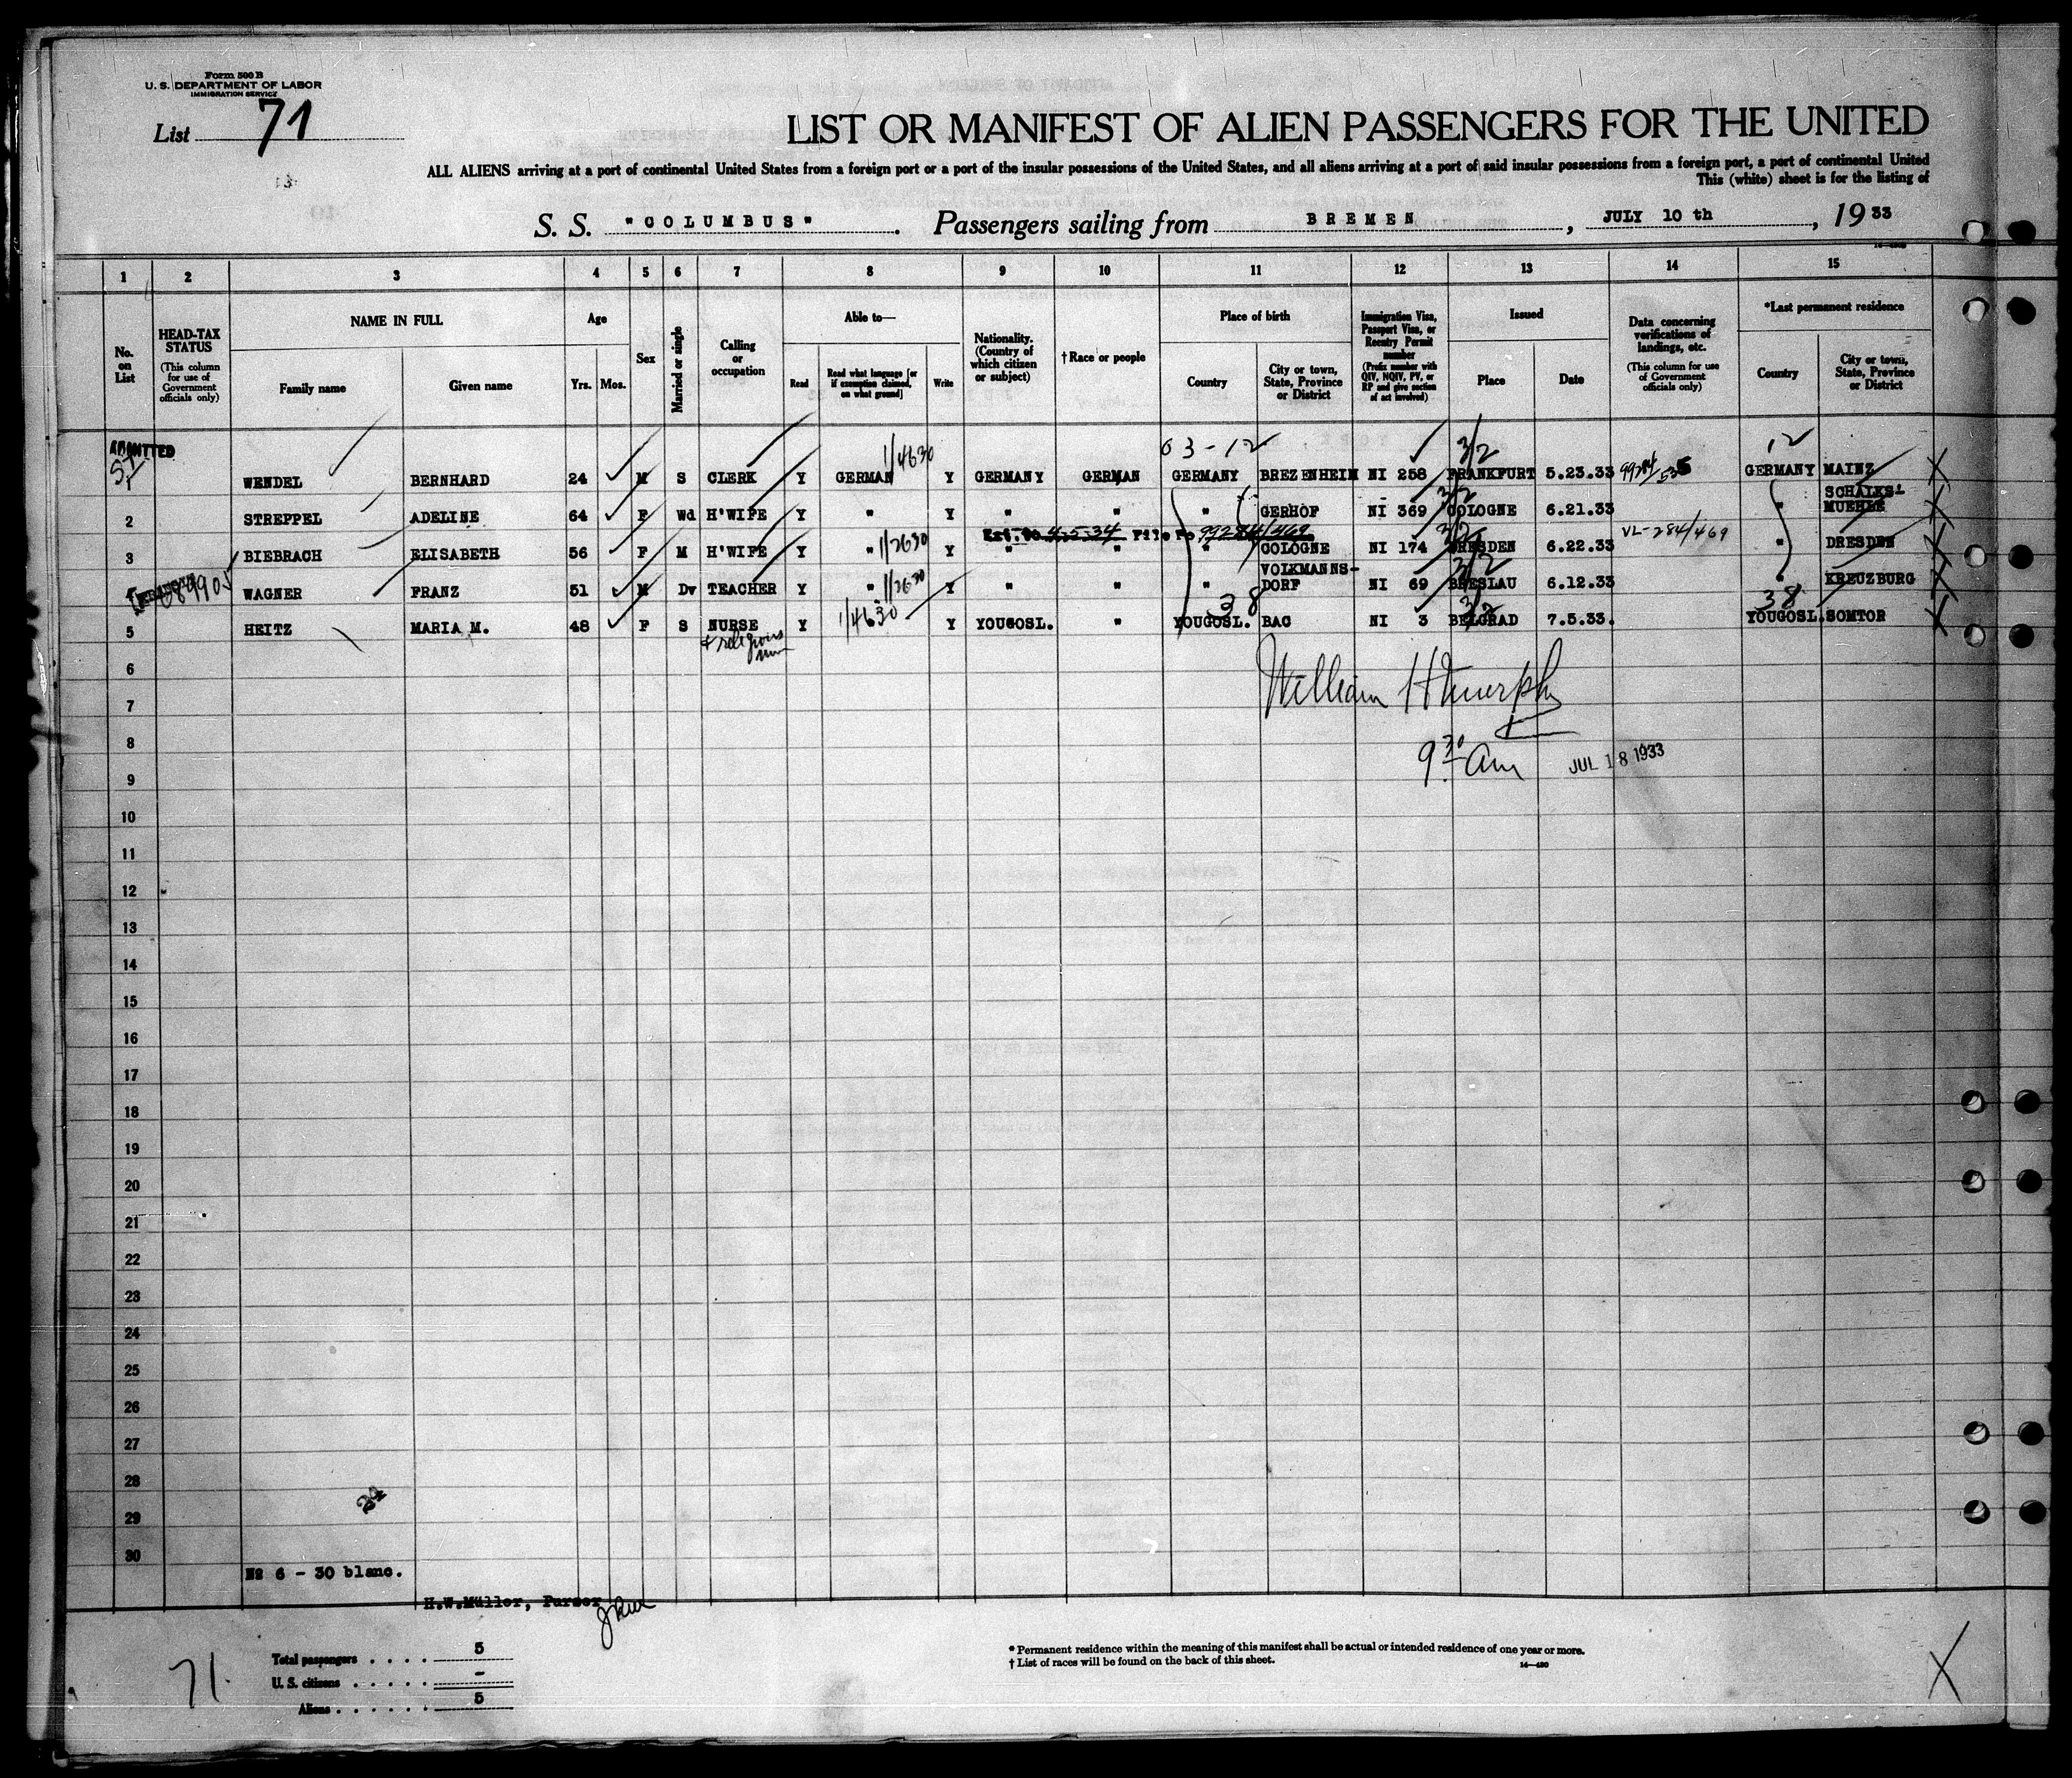 Form 500 B
U. S. DEPARTMENT OF LABOR
IMMIGRATION SERVICE
List 71
LIST OR MANIFEST OF ALIEN PASSENGERS FOR THE UNITED
ALL ALIENS arriving at a port of continental United States from a foreign port or a port of the insular possessions of the United States, and all aliens arriving at a port of said insular possessions from a foreign port, a port of continental United
This (white) sheet is for the listing of
S. S. "COLUMBUS" . Passengers sailing from BREMEN , JULY 10 th , 19 33
1 2 3 4 5 6 7 8 9 10 11 12 13 14 15
No. on List
HEAD-TAX STATUS (This column for use of Government officials only)
NAME IN FULL
Family name
Given name
Age
Yrs. Mos.
Sex
Married or single
Calling or occupation
Able to—
Read
Read what language [or if exemption claimed, on what ground]
Write
Nationality. (Country of which citizen or subject)
†Race or people
Place of birth
Country
City or town, State, Province or District
Immigration Visa, Passport Visa, or Reentry Permit number (Prefix number with QIV, NQIV, PV, or RP and give section of act involved)
Issued
Place
Date
Data concerning verifications of landings, etc. (This column for use of Government officials only)
*Last permanent residence
Country
City or town, State, Province or District
ADMITTED
03-12 3/2 12
1 WENDEL BERNHARD 24 M S CLERK Y GERMAN 1/4630 Y GERMANY GERMAN GERMANY BREZENHEIM NI 258 FRANKFURT 5.23.33 GERMANY MAINZ
2 STREPPEL ADELINE 64 F Wd H'WIFE Y " Y " " " GERHOF NI 369 COLOGNE 6.21.33 " SCHALKS-MUEHLE
Ext. to 4-5-34 File No 99284/469
3 BIEBRACH ELISABETH 56 F M H'WIFE Y " 1/2630 Y " " " COLOGNE NI 174 DRESDEN 6.22.33 VL-284/469 " DRESDEN
4 WAGNER FRANZ 51 M Dv TEACHER Y " 1/2630 Y " " " VOLKMANNS-DORF NI 69 BRESLAU 6.12.33 " KREUZBURG
38 3/2 38
5 HEITZ MARIA M. 48 F S NURSE Y 1/4630 Y YOUGOSL. " YOUGOSL. BAC NI 3 BELGRAD 7.5.33. YOUGOSL. SOMTOR
& religious nun
6
William H Murphy
7
8
9 30 am JUL 18 1933
9
10
11
12
13
14
15
16
17
18
19
20
21
22
23
24
25
26
27
28
29
30
24
№ 6 - 30 blanc.
H.W.Müller, Purser
71.
Total passengers . . . . 5
U. S. citizens . . . . . -
Aliens . . . . . . 5
* Permanent residence within the meaning of this manifest shall be actual or intended residence of one year or more.
† List of races will be found on the back of this sheet.
14—430